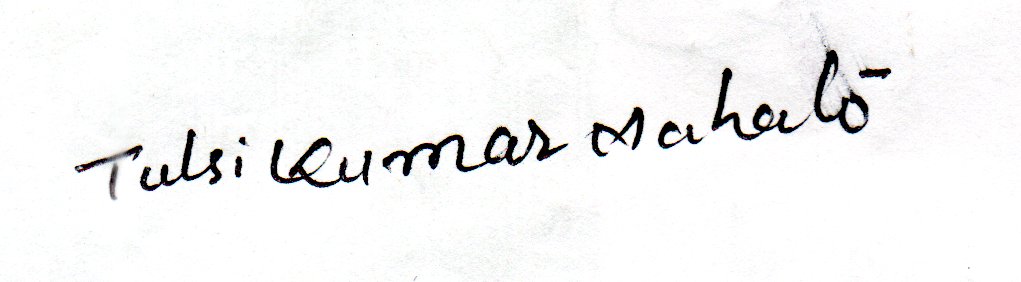 Tulsi Kumar Mahato